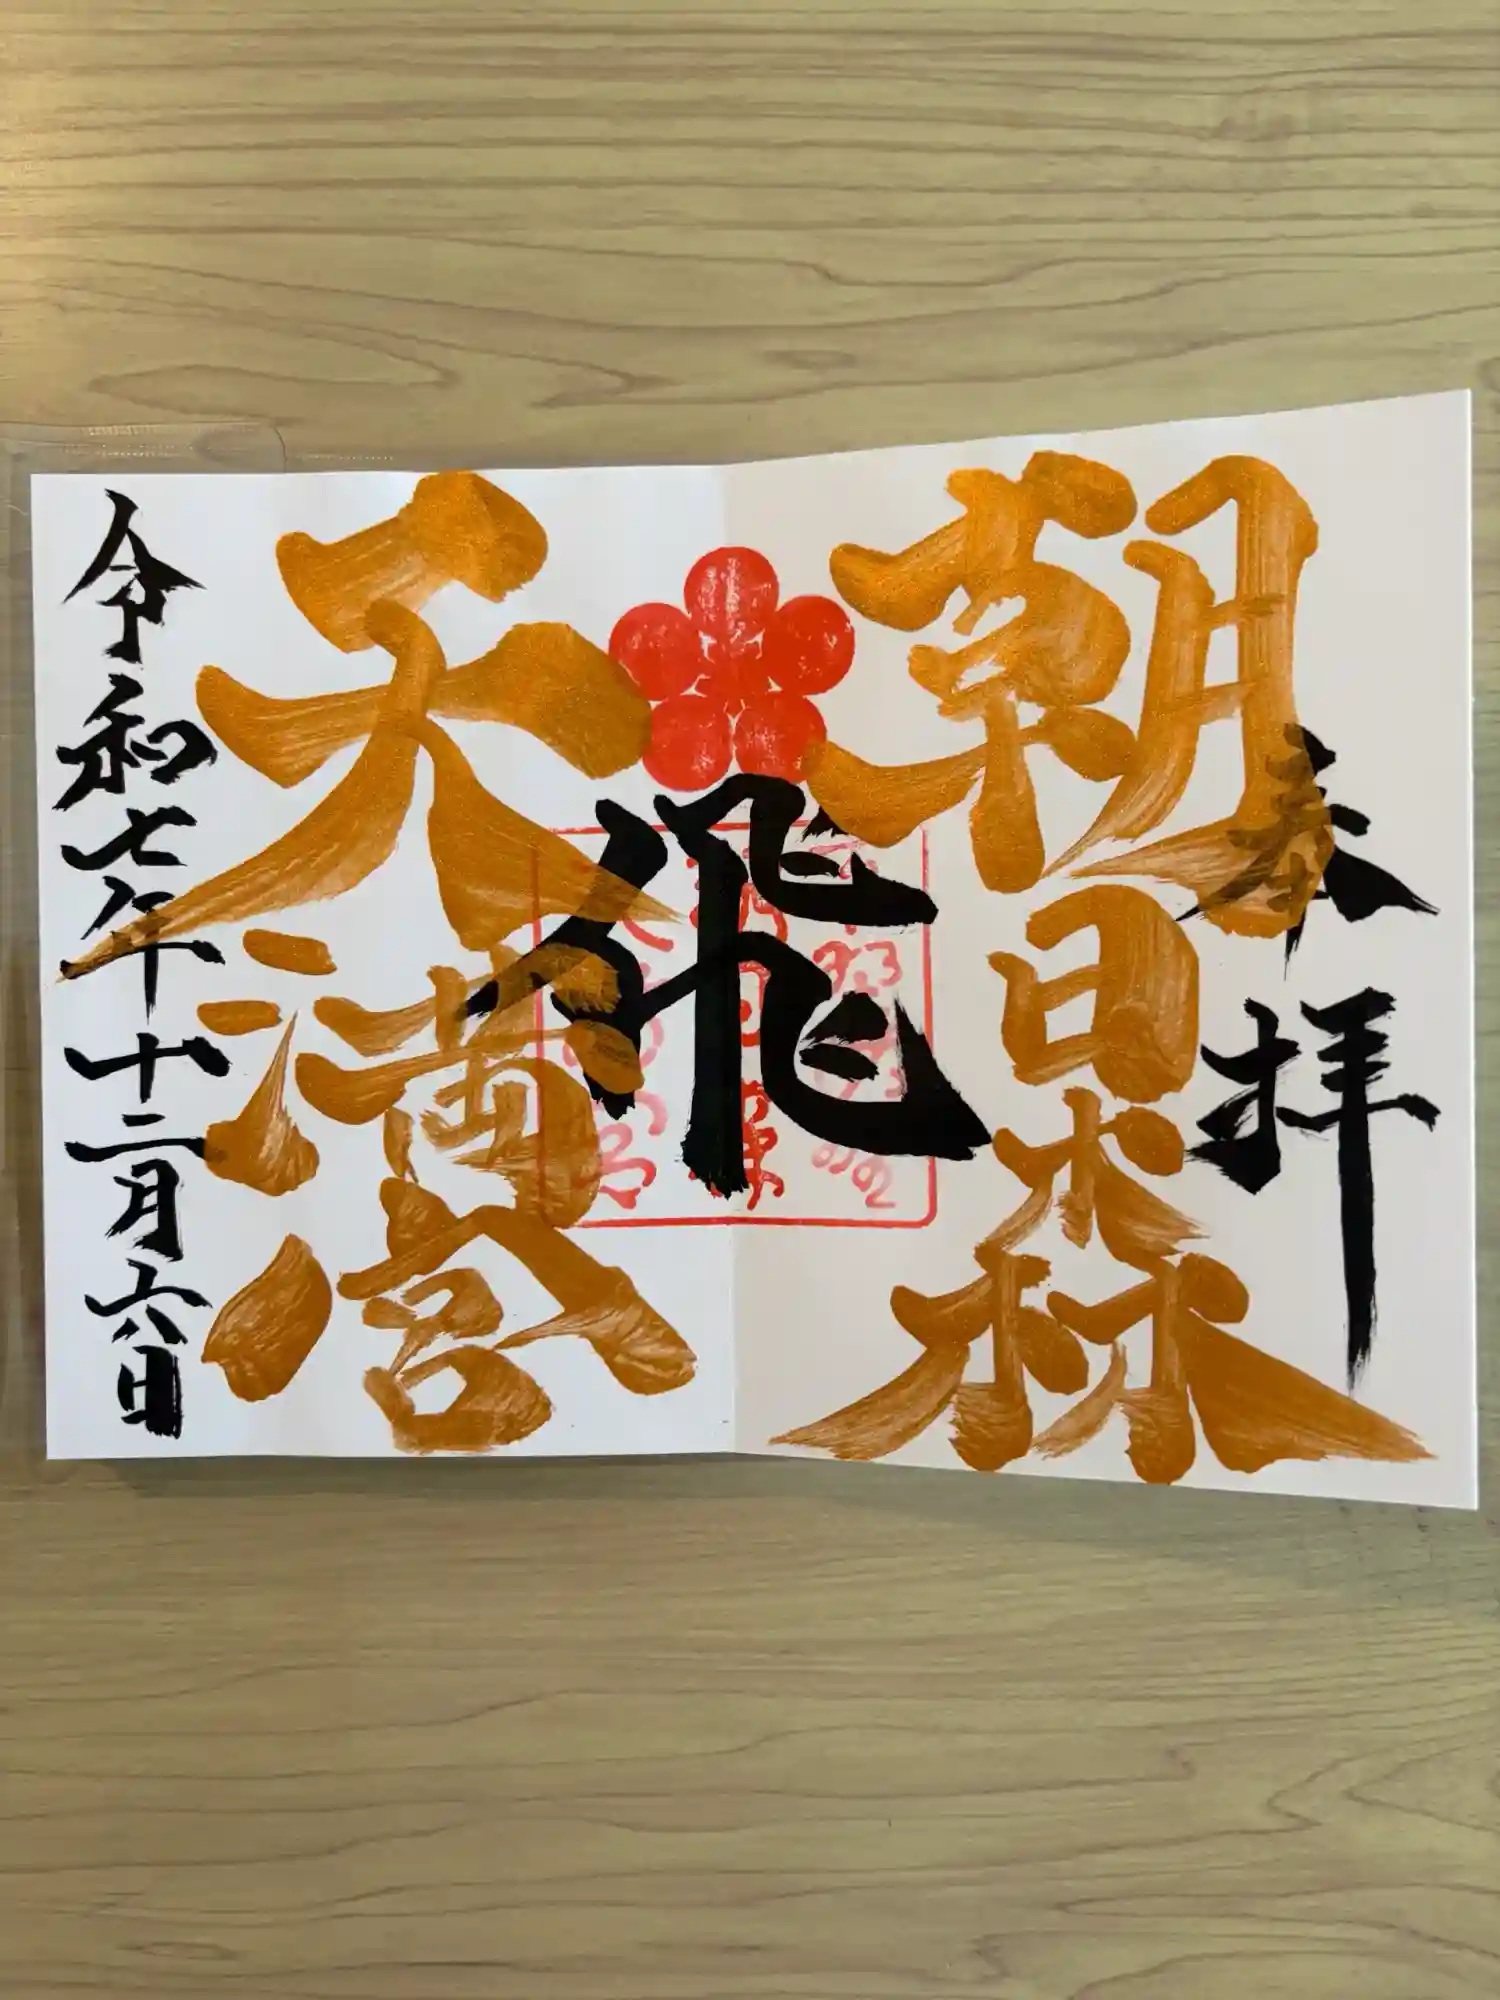 奉拝
朝日森
飛
天満宮
令和七年十二月六日